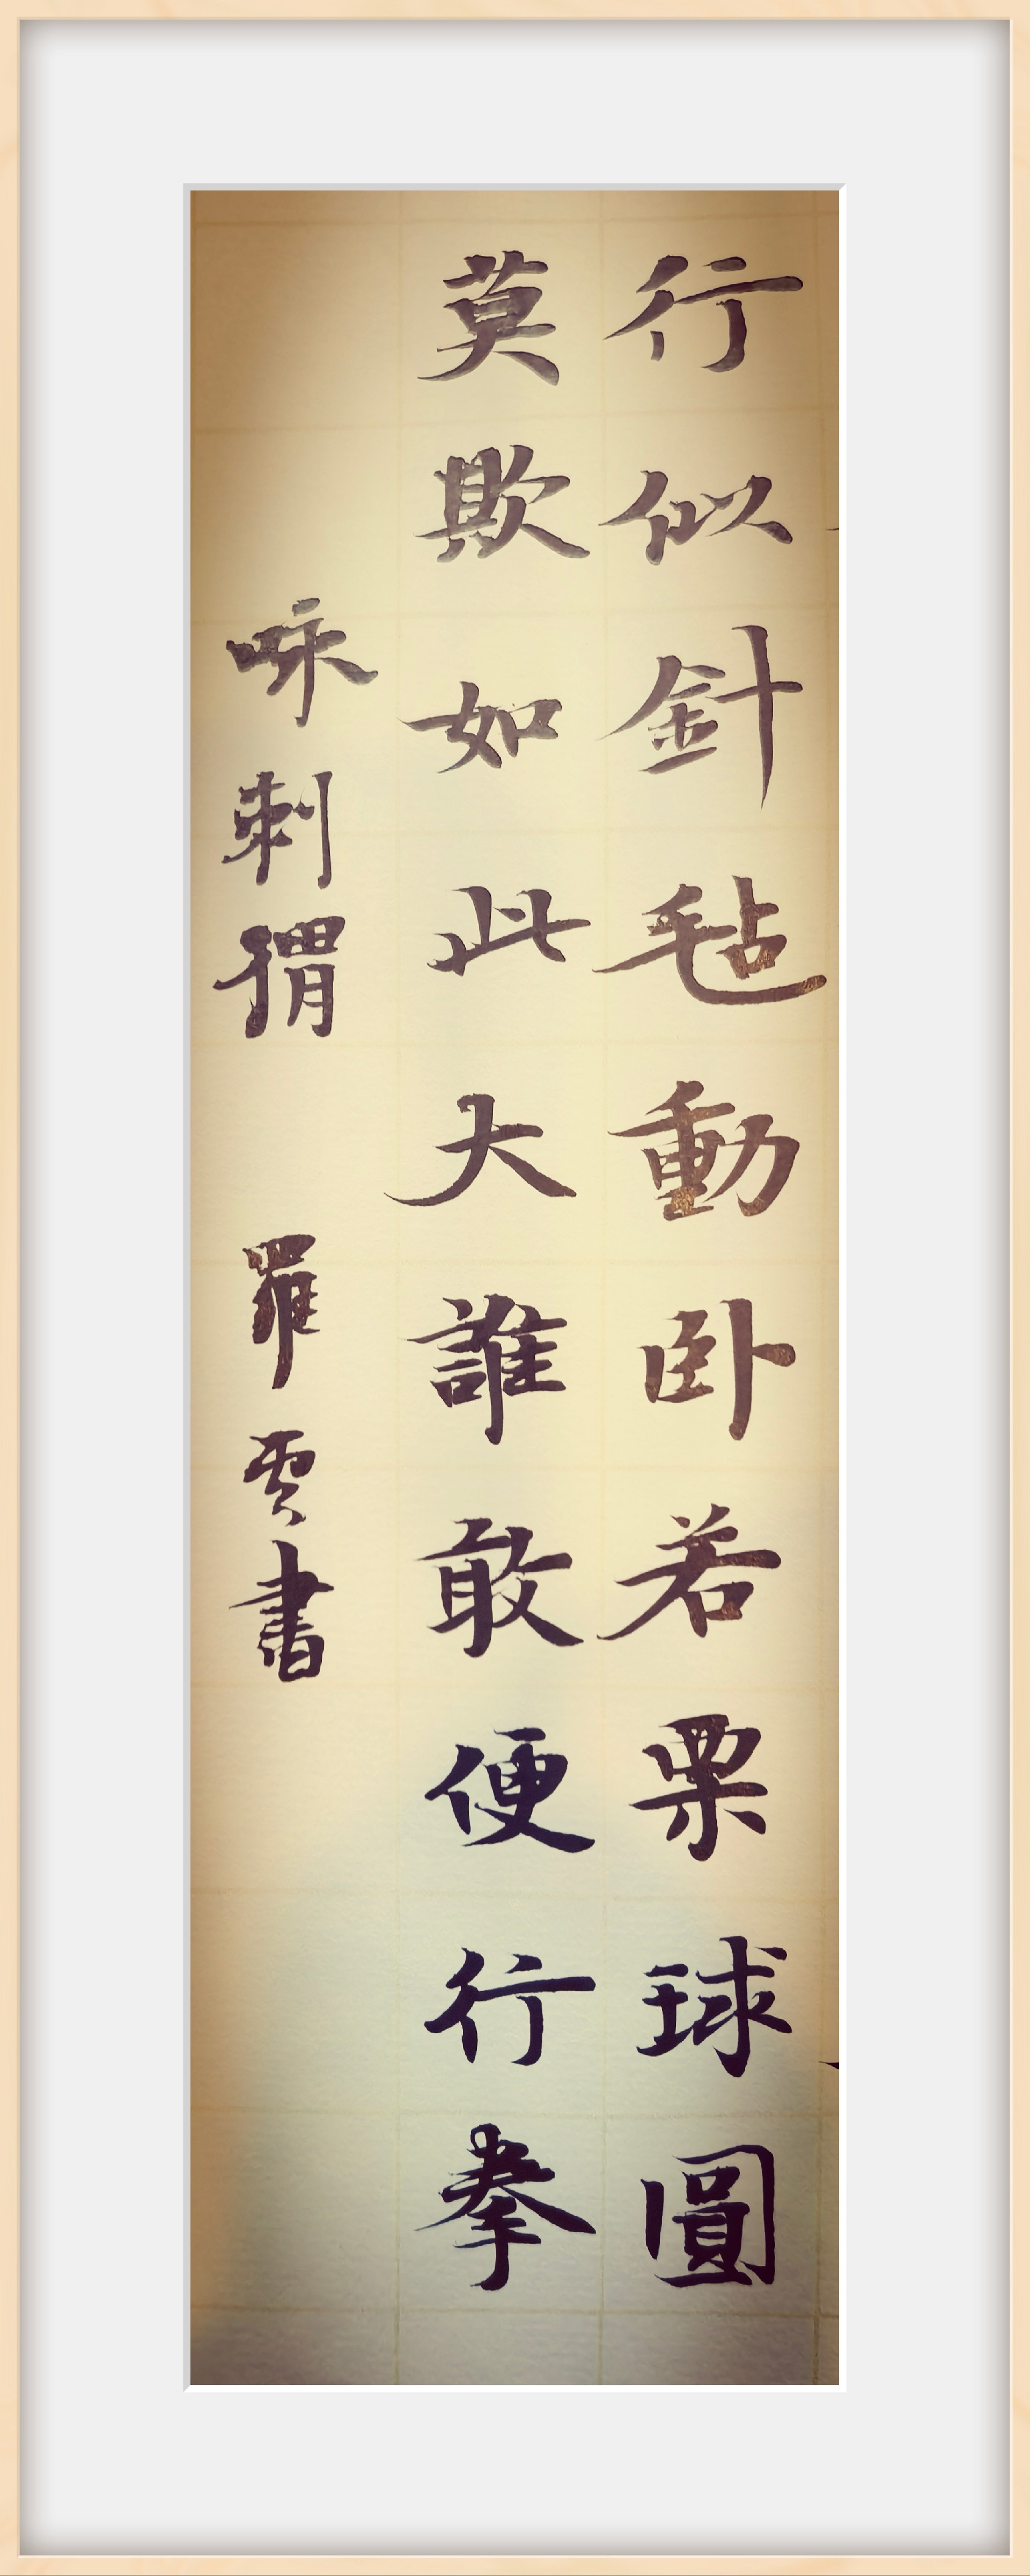 行似針毡動卧若栗球圓
莫欺如此大誰敢便行拳
咏刺猬 羅雲書